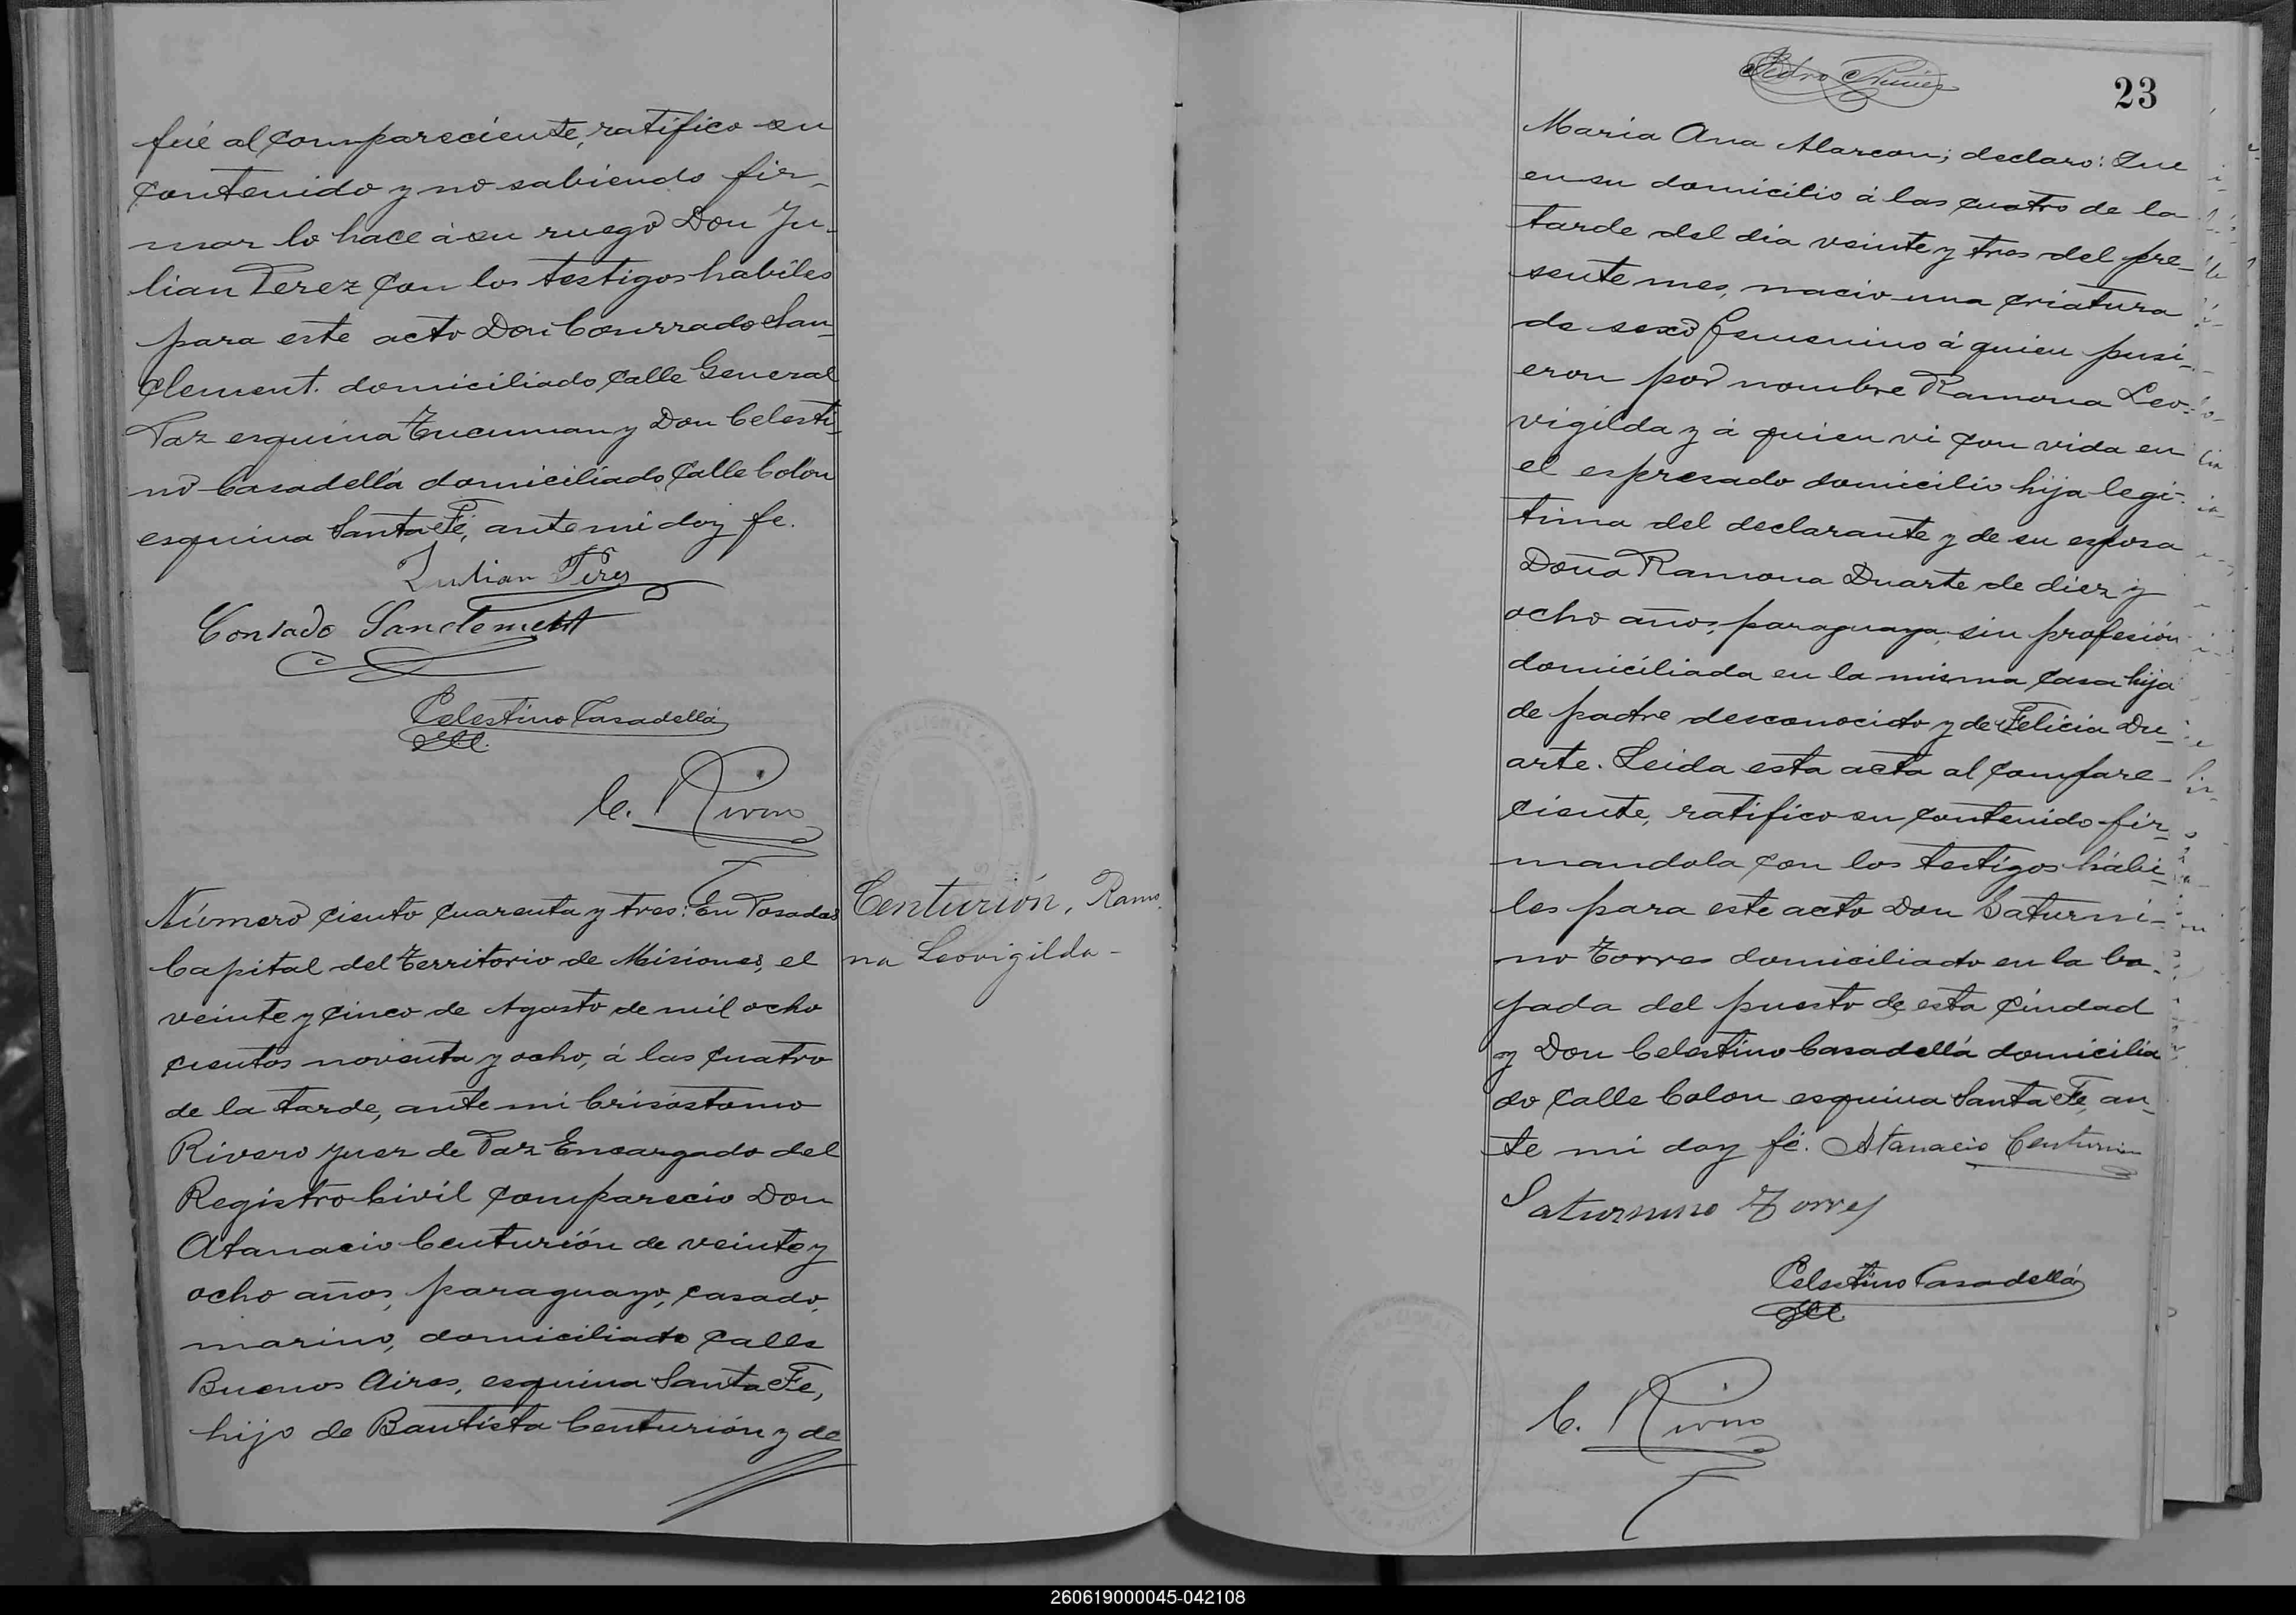 fué al compareciente, ratifico su
contenido y no sabiendo fir-
mar lo hace á su ruego Don Ju-
lian Perez con los testigos habiles
para este acto Don Conrrado San-
clement. domiciliado calle General
Paz esquina Tucuman y Don Celesti-
no Casadellá domiciliado calle Colón
esquina Santa Fé, ante mi doy fe.
Julian Peres
Conrado Sanclement
Celestino Casadellá
C. Rivero
Número ciento cuarenta y tres: En Posadas
Capital del Territorio de Misiones, el
veinte y cinco de Agosto de mil ocho
cientos noventa y ocho, á las cuatro
de la tarde, ante mi Crisóstomo
Rivero Juez de Paz Encargado del
Registro Civil comparecio Don
Atanacio Centurión de veinte y
ocho años, paraguayo, casado,
marino, domiciliado calle
Buenos Aires, esquina Santa Fe,
hijo de Bautista Centurión y de
Centurión, Ramo
na Leovigilda-
23
Maria Ana Alarcon; declaro: Que
en su domicilio á las cuatro de la
tarde del dia veinte y tres del pre-
sente mes, nacio una criatura
de sexo femenino á quien pusi-
eron por nombre Ramona Leo-
vigilda y á quien vi con vida en
el espresado domicilio hija legi-
tima del declarante y de su esposa
Doña Ramona Duarte de diez y
ocho años, paraguaya sin profesión
domiciliada en la misma casa hija
de padre desconocido y de Felicia Du-
arte. Leida esta acta al compare-
ciente, ratifico su contenido fir-
mandola con los testigos hábi-
les para este acto Don Saturni-
no Torres domiciliado en la ba-
jada del puerto de esta ciudad
y Don Celestino Casadellá domicilia
do calle Colon esquina Santa Fe, an-
te mi doy fé. Atanacio Centurion
Saturnino Torres
Celestino Casadellá
C. Rivero
260619000045-042108